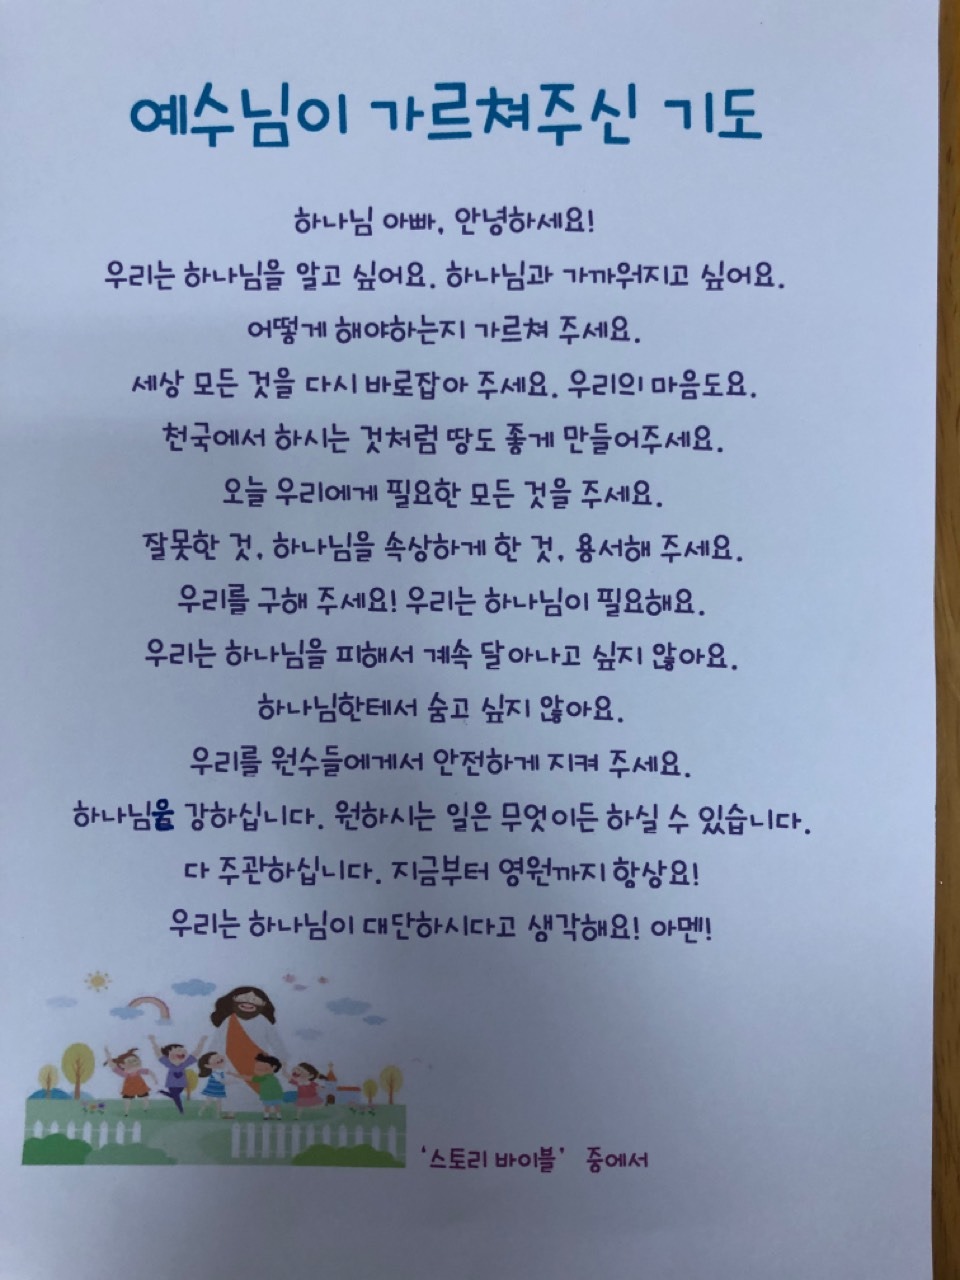 예수님이 가르쳐주신 기도
하나님 아빠, 안녕하세요!
우리는 하나님을 알고 싶어요. 하나님과 가까워지고 싶어요.
어떻게 해야하는지 가르쳐 주세요.
세상 모든 것을 다시 바로잡아 주세요. 우리의 마음도요.
천국에서 하시는 것처럼 땅도 좋게 만들어주세요.
오늘 우리에게 필요한 모든 것을 주세요.
잘못한 것, 하나님을 속상하게 한 것, 용서해 주세요.
우리를 구해 주세요! 우리는 하나님이 필요해요.
우리는 하나님을 피해서 계속 달아나고 싶지 않아요.
하나님한테서 숨고 싶지 않아요.
우리를 원수들에게서 안전하게 지켜 주세요.
하나님은 강하십니다. 원하시는 일은 무엇이든 하실 수 있습니다.
다 주관하십니다. 지금부터 영원까지 항상요!
우리는 하나님이 대단하시다고 생각해요! 아멘!
'스토리 바이블' 중에서